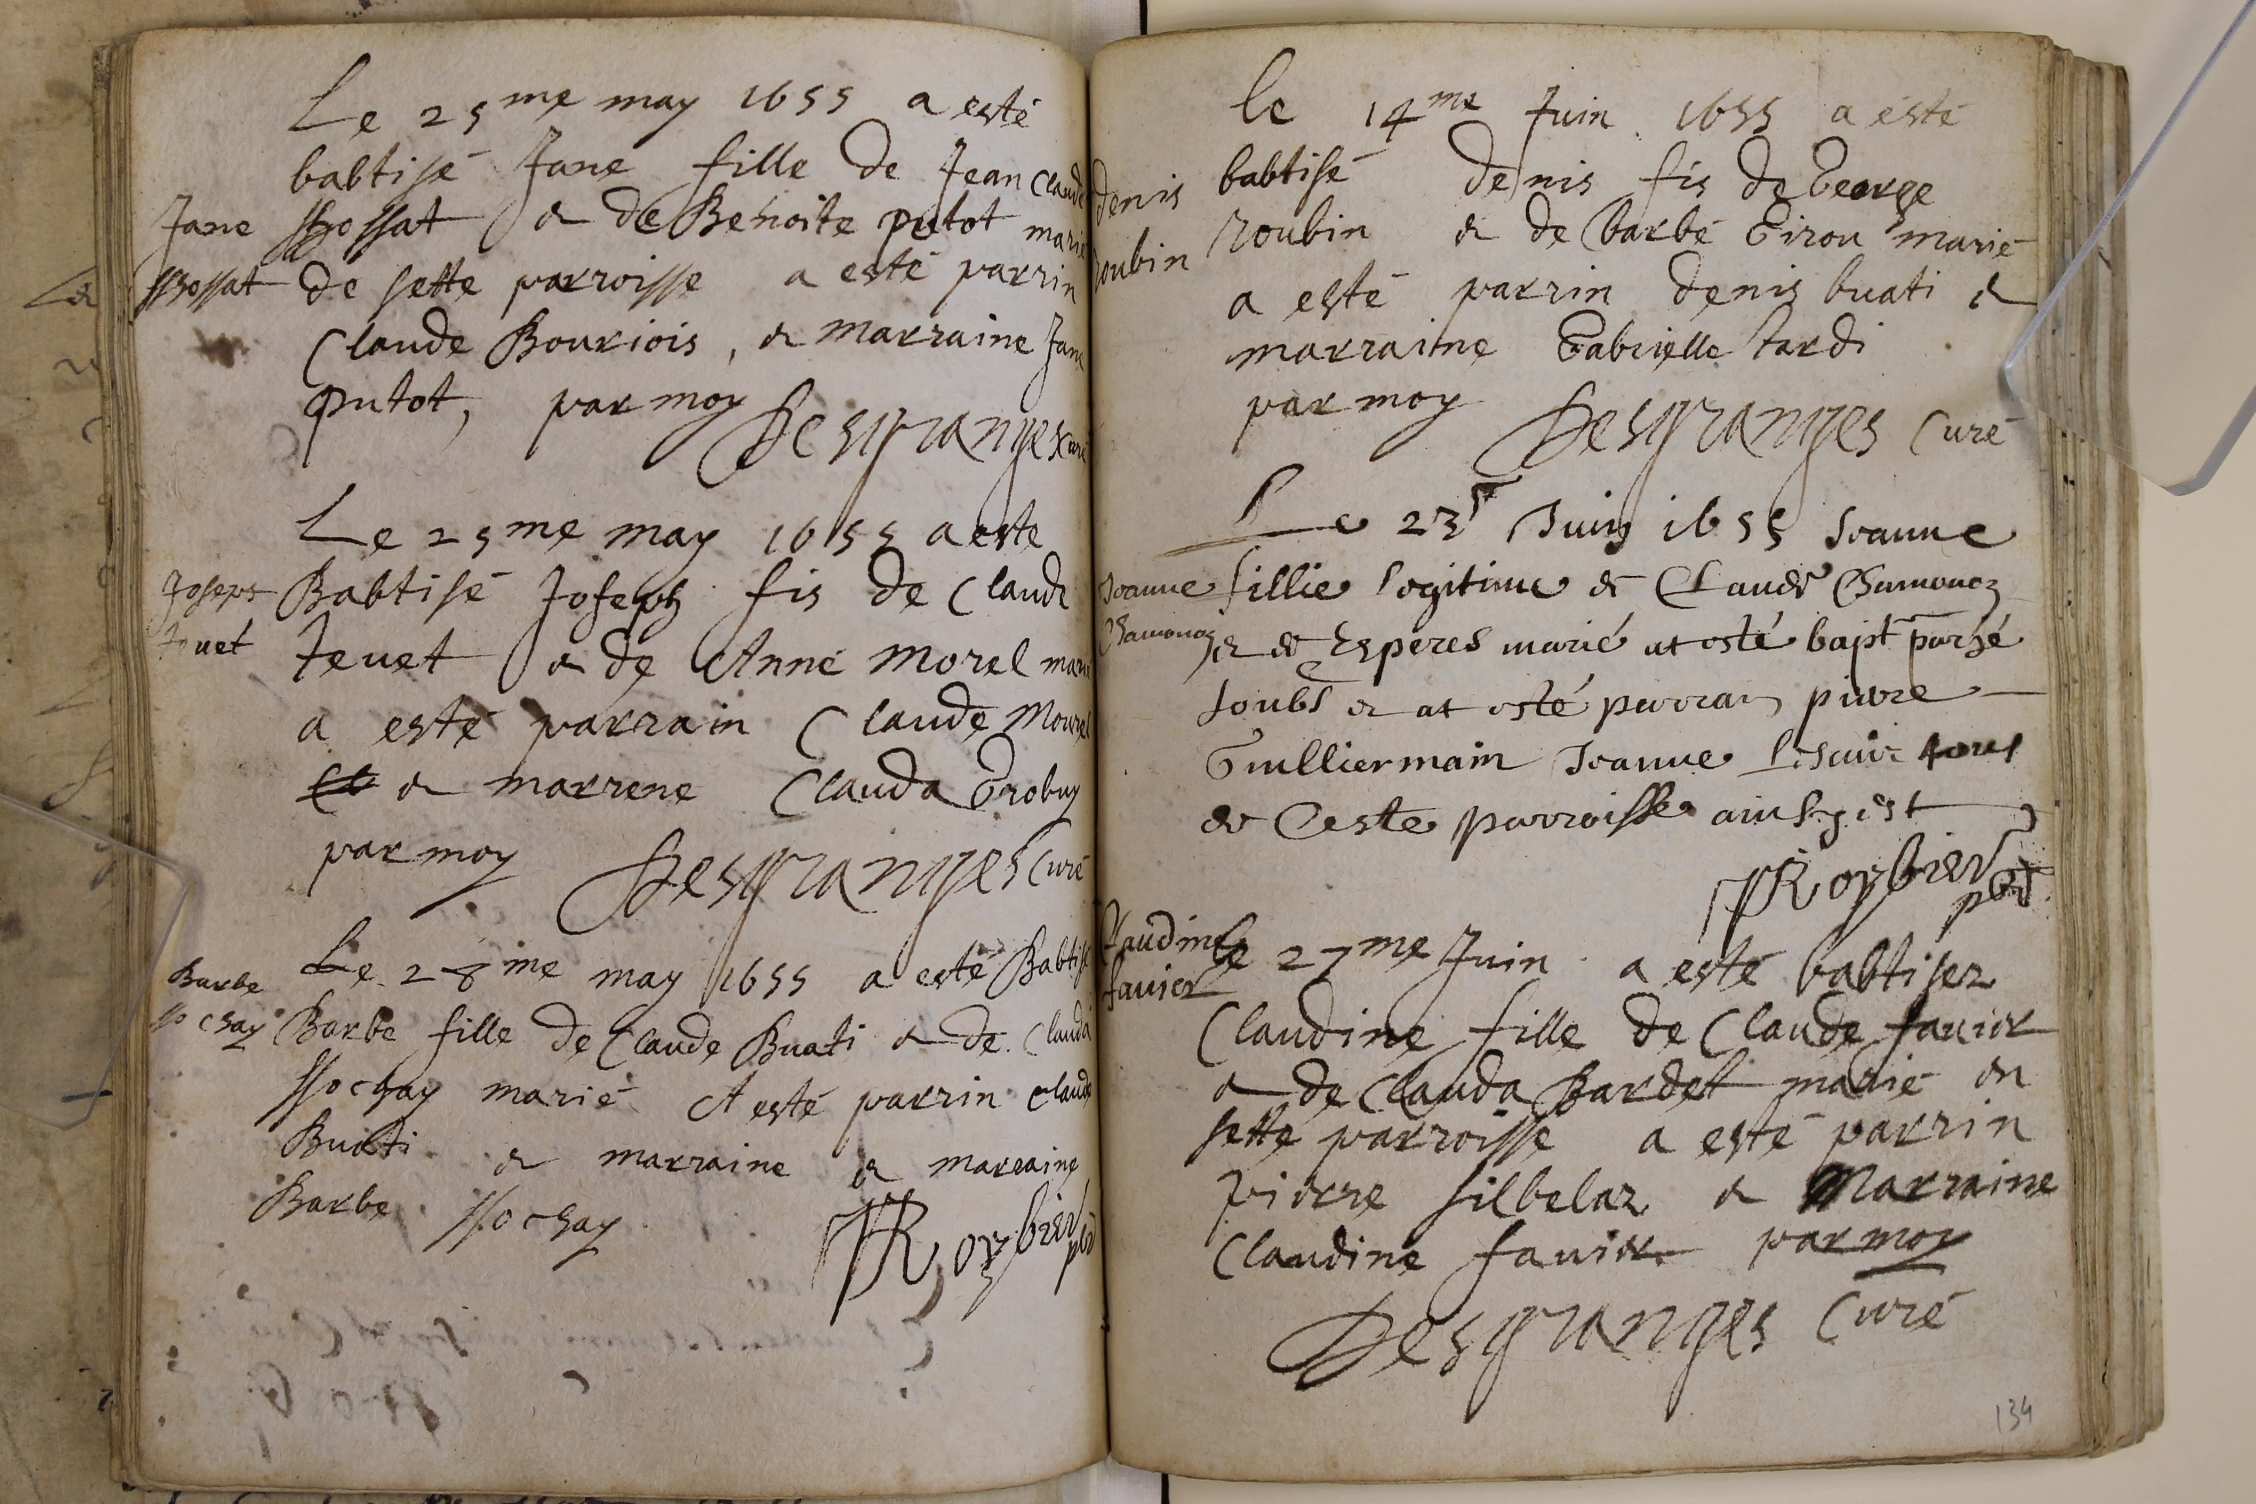 Le 25me may 1655 a esté
babtisé Jane fille de Jean Claude
Jane ssossat & de Benoite putot marié
ssossat de sette parroisse a esté parrin
Claude Bouriois, & marraine Jane
putot, par moy
Desgranges curé
Le 25me may 1655 a este
Joseps Babtisé Joseph fis de Claude
tevet & de Anne Morel marié
a esté parrain Claude Mourel
& marrene Clauda Grobuy
par moy Desgranges Curé
Le 28me may 1655 a esté Babtisé
Barbe
ssochay Barbe fille de Claude Buati & de Clauda
ssochay marié A esté parrin Claude
Buati & marraine & marraine
Barbe ssochay
Roybier pbr
le 14me Juin 1655 a esté
denis babtisé denis fis de George
roubin roubin & de barbe Giron marié
a esté parrin denis buati &
marraine Gabrielle tardi
par moy
Desgranges Curé
Le 23 Juin 1655 Jeanne
Jeanne fillie legitime de Claude Chamonoz
Chamonoz & de esperes marié at esté bapt
soubs & at esté parrain pierre
Guilliermain Jeanne
de Ceste parroisse ainsy est
Roybier pbr
Claudine le 27me Juin a esté babtisez
favier
Claudine fille de Claude favier
& de Clauda Bardet marié en
sette parroisse a esté parrin
pierre silbelaz & Marraine
Claudine favier par moy
Desgranges Curé
134